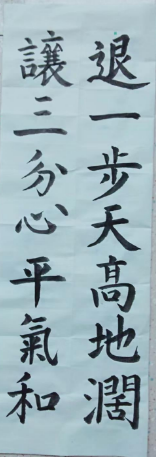 退一步天高地濶
讓三分心平氣和